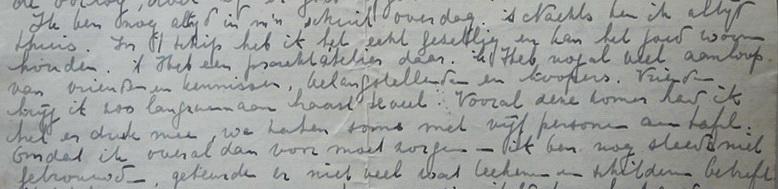 Ik ben nog altijd in m'n schuit overdag. 's Nachts ben ik altijd
thuis. In 't schip heb ik het echt gezellig en kan het goed warm
houden. 't Heb een prachtatelier daar. 'k Heb nogal veel aanloop
van vrienden en kennissen, belangstellenden en koopers. Vrienden
krijg ik zoo langzamerhand haast teveel. Vooral deze zomer had ik
het er druk mee, we zaten soms met vijf personen aan tafel.
Omdat ik overal dan voor moet zorgen – ik ben nog steeds niet
getrouwd –, gebeurde er niet veel wat teekenen en schilderen betreft